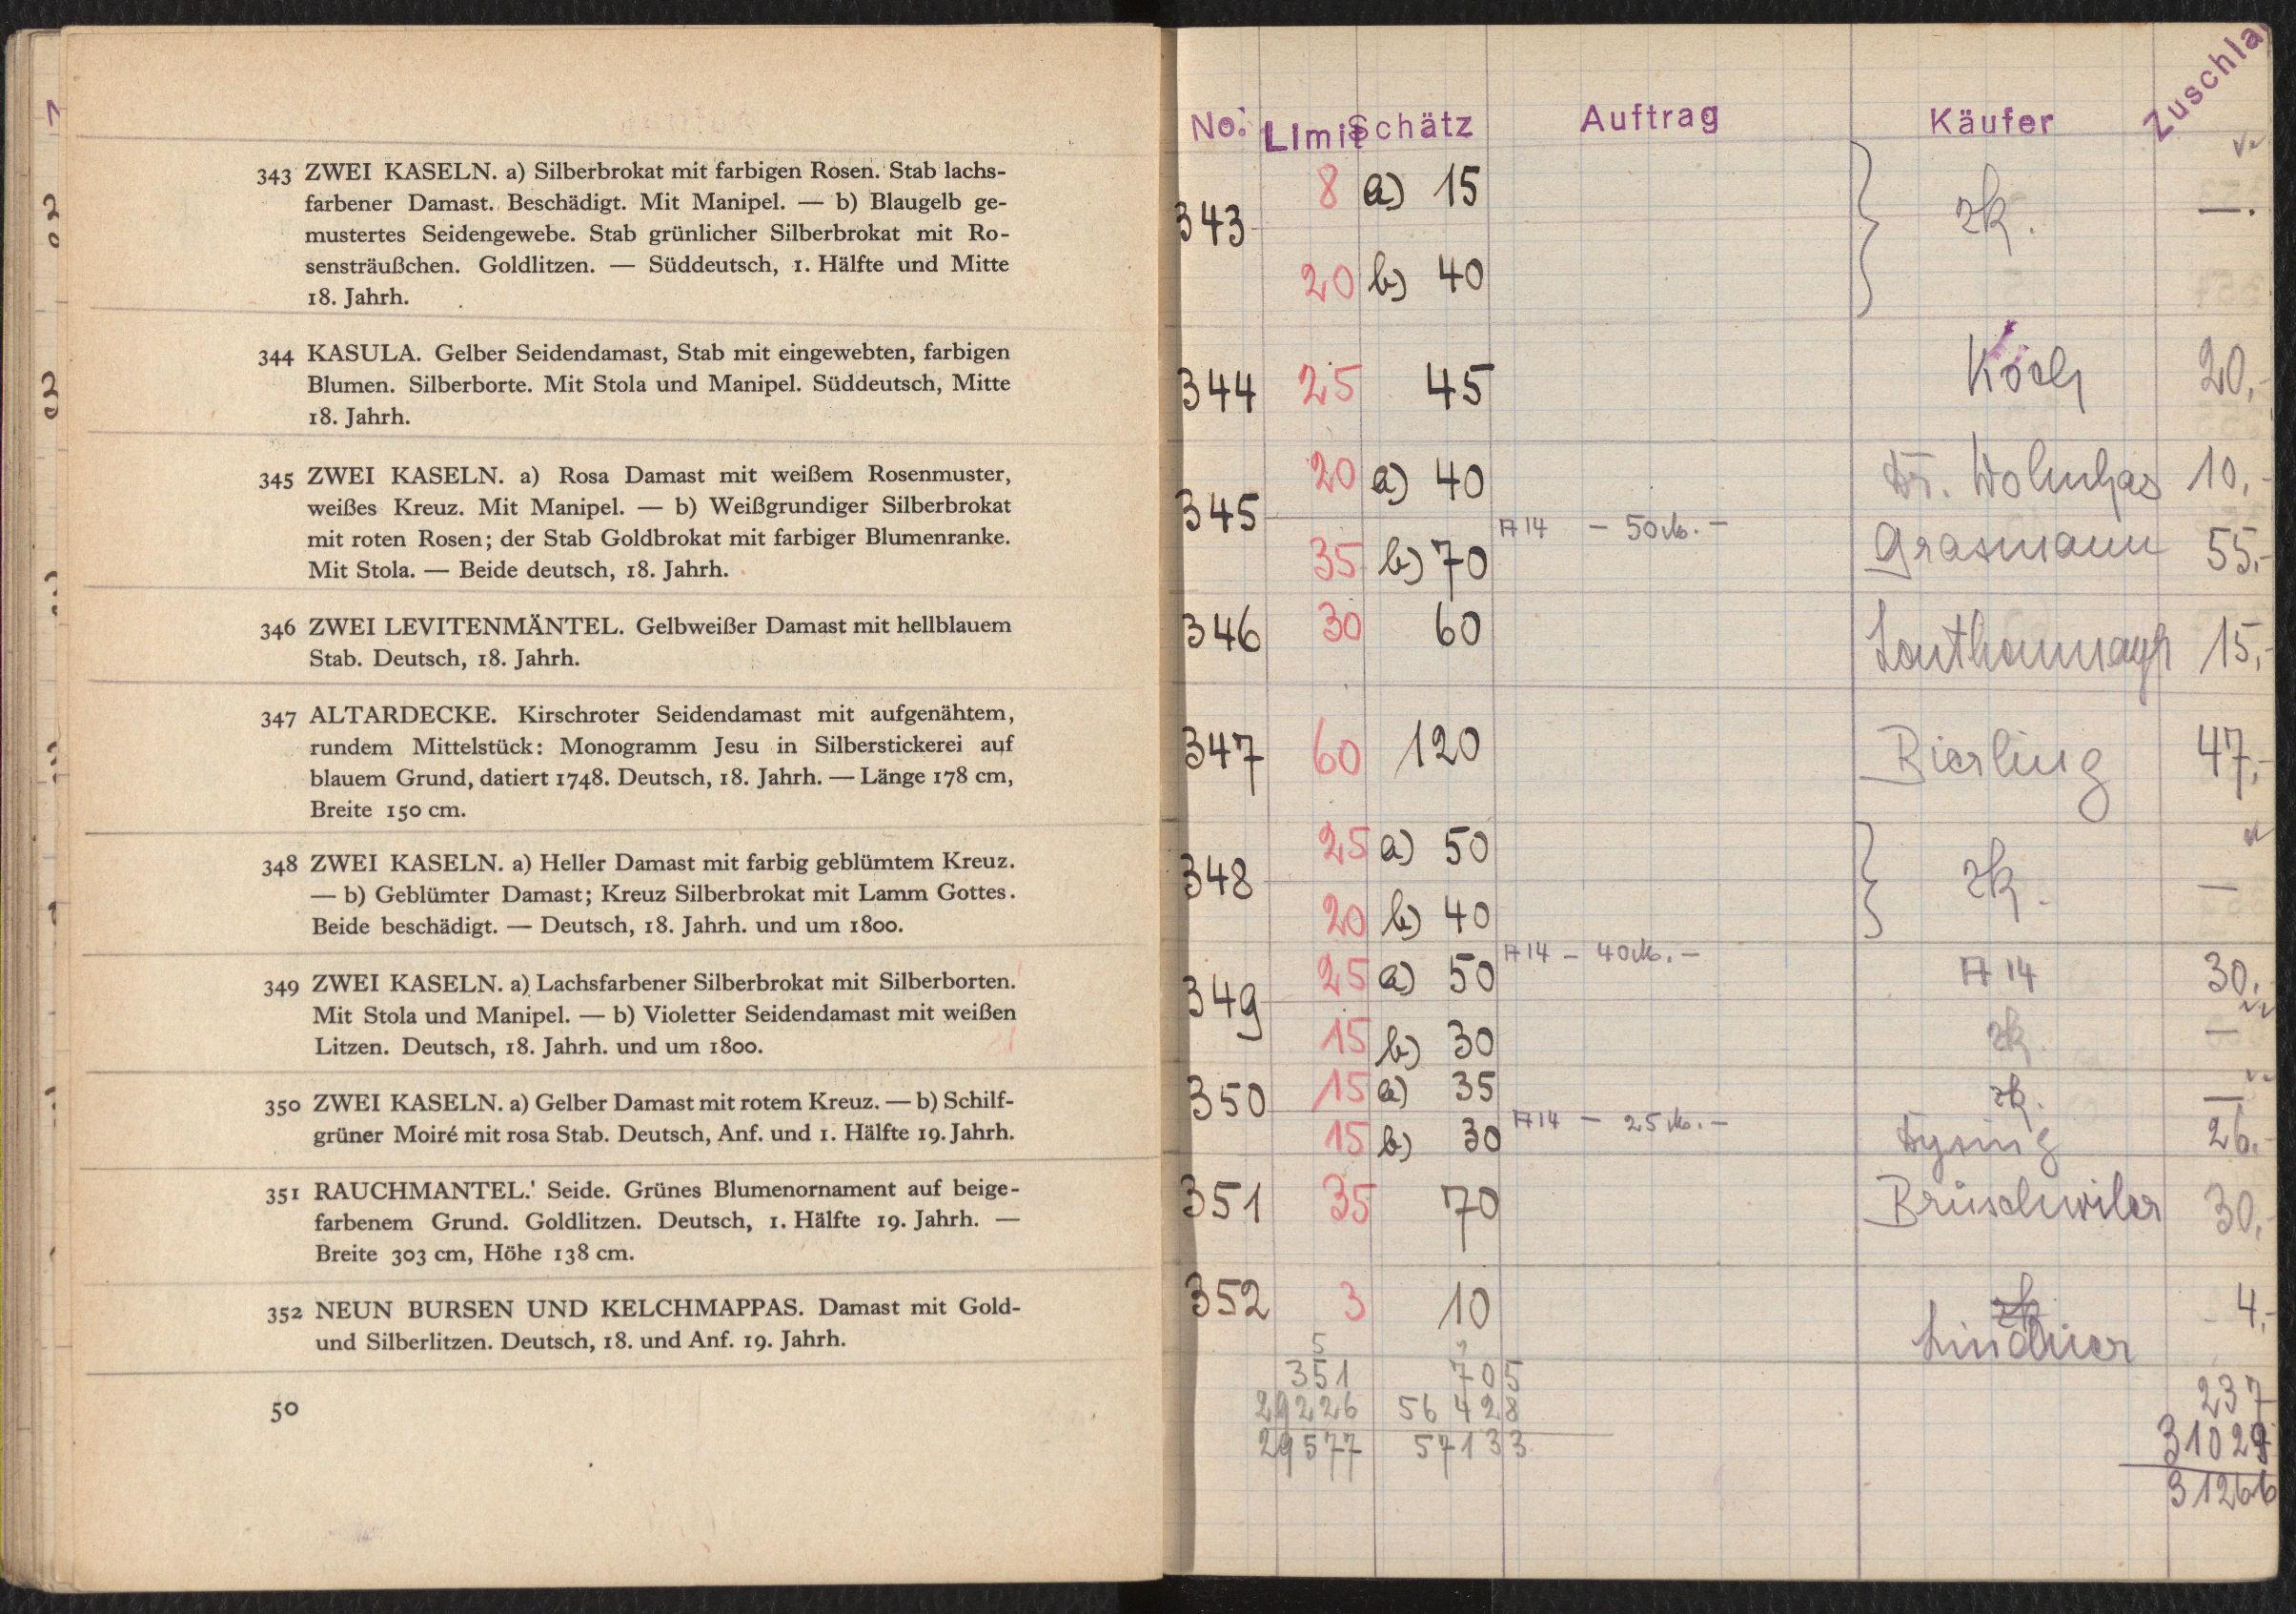 343 ZWEI KASELN. a) Silberbrokat mit farbigen Rosen. Stab lachs-
farbener Damast. Beschädigt. Mit Manipel. — b) Blaugelb ge-
mustertes Seidengewebe. Stab grünlicher Silberbrokat mit Ro-
sensträußchen. Goldlitzen. — Süddeutsch, 1. Hälfte und Mitte
18. Jahrh.
344 KASULA. Gelber Seidendamast, Stab mit eingewebten, farbigen
Blumen. Silberborte. Mit Stola und Manipel. Süddeutsch, Mitte
18. Jahrh.
345 ZWEI KASELN. a) Rosa Damast mit weißem Rosenmuster,
weißes Kreuz. Mit Manipel. — b) Weißgrundiger Silberbrokat
mit roten Rosen; der Stab Goldbrokat mit farbiger Blumenranke.
Mit Stola. — Beide deutsch, 18. Jahrh.
346 ZWEI LEVITENMÄNTEL. Gelbweißer Damast mit hellblauem
Stab. Deutsch, 18. Jahrh.
347 ALTARDECKE. Kirschroter Seidendamast mit aufgenähtem,
rundem Mittelstück: Monogramm Jesu in Silberstickerei auf
blauem Grund, datiert 1748. Deutsch, 18. Jahrh. — Länge 178 cm,
Breite 150 cm.
348 ZWEI KASELN. a) Heller Damast mit farbig geblümtem Kreuz.
— b) Geblümter Damast; Kreuz Silberbrokat mit Lamm Gottes.
Beide beschädigt. — Deutsch, 18. Jahrh. und um 1800.
349 ZWEI KASELN. a) Lachsfarbener Silberbrokat mit Silberborten.
Mit Stola und Manipel. — b) Violetter Seidendamast mit weißen
Litzen. Deutsch, 18. Jahrh. und um 1800.
350 ZWEI KASELN. a) Gelber Damast mit rotem Kreuz. — b) Schilf-
grüner Moiré mit rosa Stab. Deutsch, Anf. und 1. Hälfte 19. Jahrh.
351 RAUCHMANTEL. Seide. Grünes Blumenornament auf beige-
farbenem Grund. Goldlitzen. Deutsch, 1. Hälfte 19. Jahrh. —
Breite 303 cm, Höhe 138 cm.
352 NEUN BURSEN UND KELCHMAPPAS. Damast mit Gold-
und Silberlitzen. Deutsch, 18. und Anf. 19. Jahrh.
50
No. Limit Schätz Auftrag Käufer Zuschla
343 8 a) 15 zk. —.
20 b) 40
344 25 45 Koch 20,-
345 20 a) 40 Dr. 10,-
35 b) 70 A 14 – 50 M. – Grasmann 55,-
346 30 60 15,-
347 60 120 Bierling 47,-
348 25 a) 50 zk. —
20 b) 40
349 25 a) 50 A 14 – 40 M. – A 14 30,-
15 b) 30 zk. —
350 15 a) 35 zk. —
15 b) 30 A 14 – 25 M. – 26.-
351 35 70 Brüschwiler 30,-
352 3 10 zk 4,-
Lindner
5
351 705 237
29226 56428 31029
29577 57133 31266